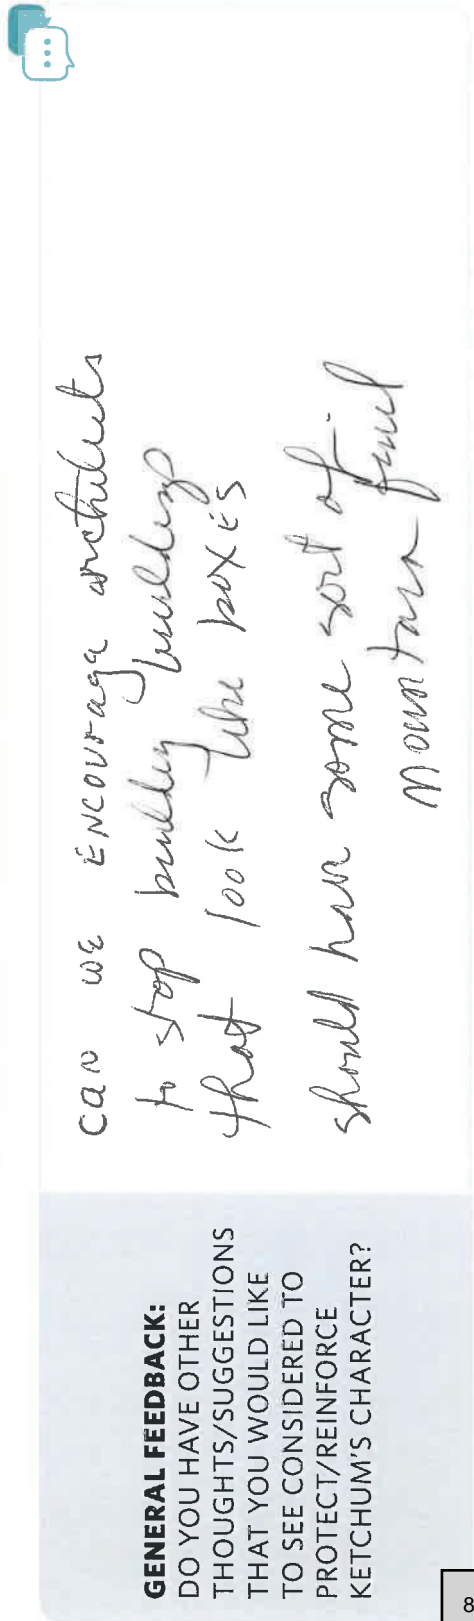 GENERAL FEEDBACK:
DO YOU HAVE OTHER
THOUGHTS/SUGGESTIONS
THAT YOU WOULD LIKE
TO SEE CONSIDERED TO
PROTECT/REINFORCE
KETCHUM'S CHARACTER?
can we ENCOURAGE architects
to stop building buildings
that look like boxes
should have some sort of
mountain
8